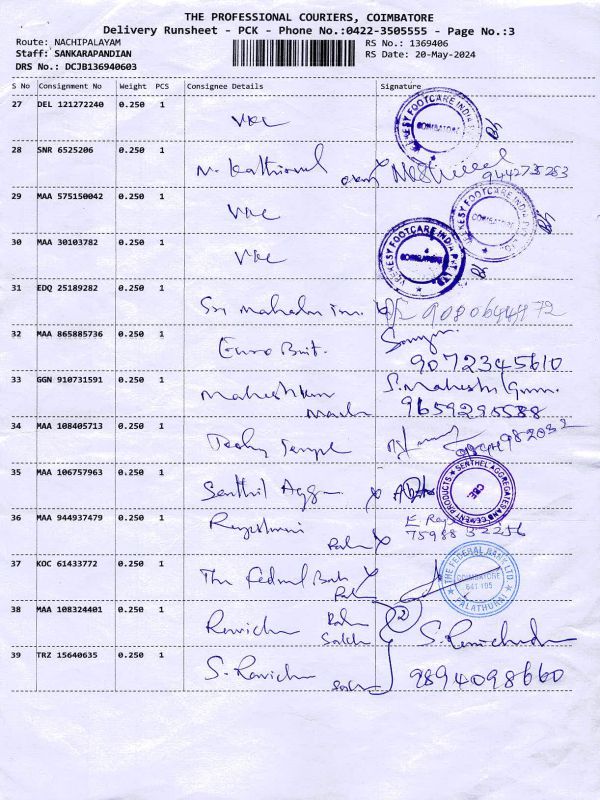 THE PROFESSIONAL COURIERS, COIMBATORE
Delivery Runsheet - PCK - Phone No.:0422-3505555 - Page No.:3
Route: NACHIPALAYAM RS No.: 1369406
Staff: SANKARAPANDIAN RS Date: 20-May-2024
DRS No.: DCJB136940603
S No Consignment No Weight PCS Consignee Details Signature
27 DEL 121272240 0.250 1 VKC
VEEKESY FOOTCARE INDIA PVT LTD. COIMBATORE
28 SNR 6525206 0.250 1
29 MAA 575150042 0.250 1 VKC
VEEKESY FOOTCARE INDIA PVT LTD. COIMBATORE
30 MAA 30103782 0.250 1 VKC
VEEKESY FOOTCARE INDIA PVT LTD. COIMBATORE
31 EDQ 25189282 0.250 1 Sri
32 MAA 865885736 0.250 1 Euro
9072345610
33 GGN 910731591 0.250 1 S. Mahesh
9659295588
34 MAA 108405713 0.250 1 Temple
35 MAA 106757963 0.250 1 Senthil Aggr
SENTHEL AGGREGATES AND CEMENT PRODUCTS CBE
36 MAA 944937479 0.250 1 Rajeshwari
75988 32256
37 KOC 61433772 0.250 1 The Fedral Bank
THE FEDERAL BANK LTD. COIMBATORE 641 105 PALATHURAI
38 MAA 108324401 0.250 1 2
39 TRZ 15640635 0.250 1 9894098660